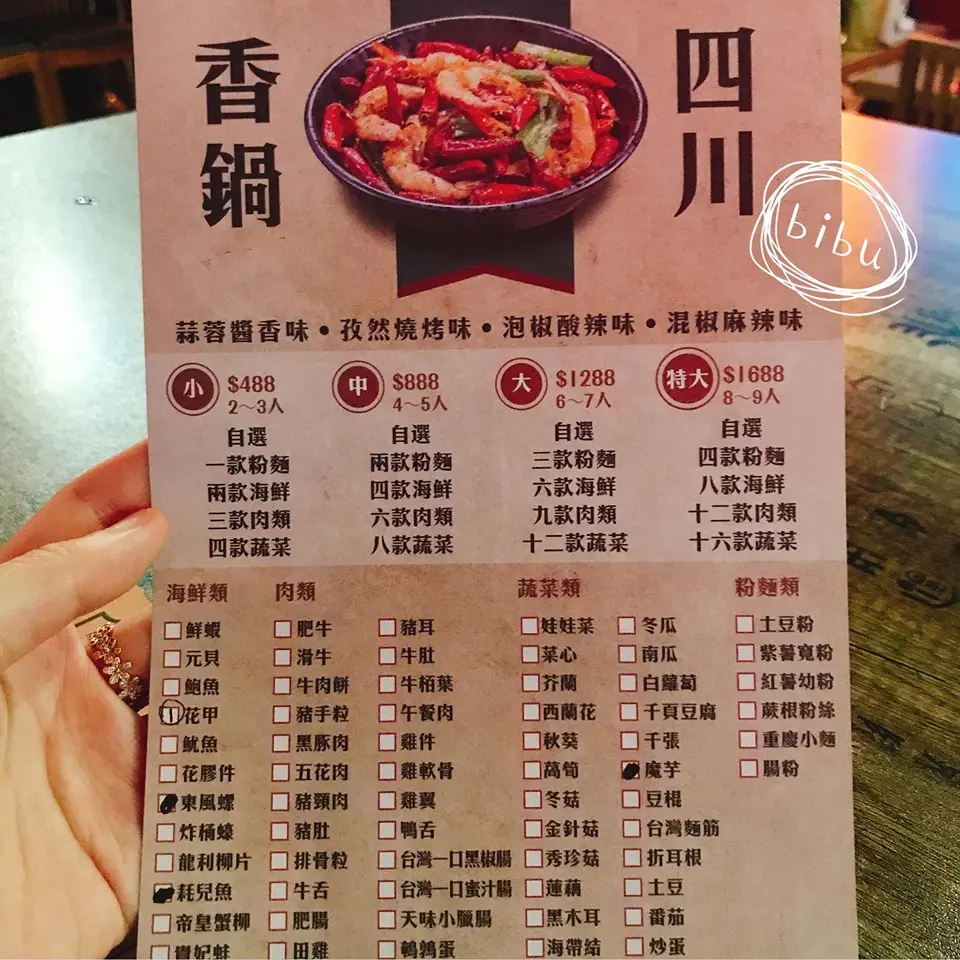 四川
香鍋
bibu
蒜蓉醬香味・孜然燒烤味・泡椒酸辣味・混椒麻辣味
小 $488
2～3人
自選
一款粉麵
兩款海鮮
三款肉類
四款蔬菜
中 $888
4～5人
自選
兩款粉麵
四款海鮮
六款肉類
八款蔬菜
大 $1288
6～7人
自選
三款粉麵
六款海鮮
九款肉類
十二款蔬菜
特大 $1688
8～9人
自選
四款粉麵
八款海鮮
十二款肉類
十六款蔬菜
海鮮類
鮮蝦
元貝
鮑魚
花甲
魷魚
花膠件
東風螺
炸桶蠔
龍利柳片
耗兒魚
帝皇蟹柳
貴妃蚌
肉類
肥牛
滑牛
牛肉餅
豬手粒
黑豚肉
五花肉
豬頸肉
豬肚
排骨粒
牛舌
肥腸
田雞
豬耳
牛肚
牛栢葉
午餐肉
雞件
雞軟骨
雞翼
鴨舌
台灣一口黑椒腸
台灣一口蜜汁腸
天味小臘腸
鵪鶉蛋
蔬菜類
娃娃菜
菜心
芥蘭
西蘭花
秋葵
萵筍
冬菇
金針菇
秀珍菇
蓮藕
黑木耳
海帶結
冬瓜
南瓜
白蘿蔔
千頁豆腐
千張
魔芋
豆棍
台灣麵筋
折耳根
土豆
番茄
炒蛋
粉麵類
土豆粉
紫薯寬粉
紅薯幼粉
蕨根粉絲
重慶小麵
腸粉